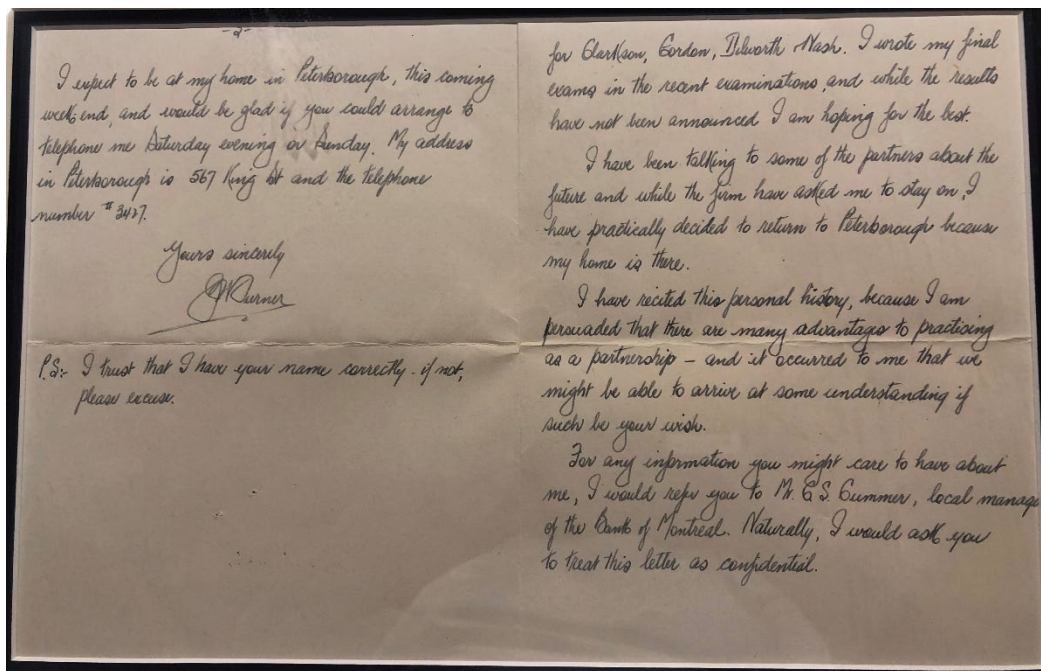 -2-
I expect to be at my home in Peterborough, this coming
weekend, and would be glad if you could arrange to
telephone me Saturday evening or Sunday. My address
in Peterborough is 567 King St and the telephone
number # 3427.
Yours sincerely
P.S:- I trust that I have your name correctly - if not,
please excuse.
for Clarkson, Gordon, Dilworth Nash. I wrote my final
exams in the recent examinations, and while the results
have not been announced I am hoping for the best.
I have been talking to some of the partners about the
future and while the firm have asked me to stay on, I
have practically decided to return to Peterborough because
my home is there.
I have recited this personal history, because I am
persuaded that there are many advantages to practising
as a partnership - and it occurred to me that we
might be able to arrive at some understanding if
such be your wish.
For any information you might care to have about
me, I would refer you to Mr. S. Cummer, local manage
of the Bank of Montreal. Naturally, I would ask you
to treat this letter as confidential.